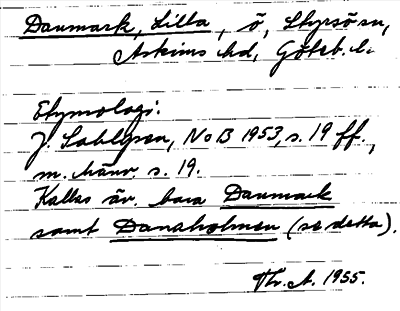 Danmark, Lilla, ö, Styrsö sn,
Askims hd, Göteb. l.
Etymologi:
J. Sahlgren, NoB 1953, s. 19 ff.,
m. hänv. s. 19.
Kallas äv. bara Danmark
samt Danaholmen (se detta).
Th. A. 1955.